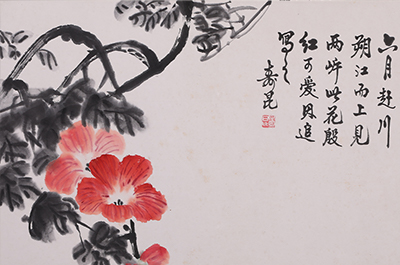 六月赴川
朔江而上見
兩岸此花殷
紅可愛因追
寫之
壽昆